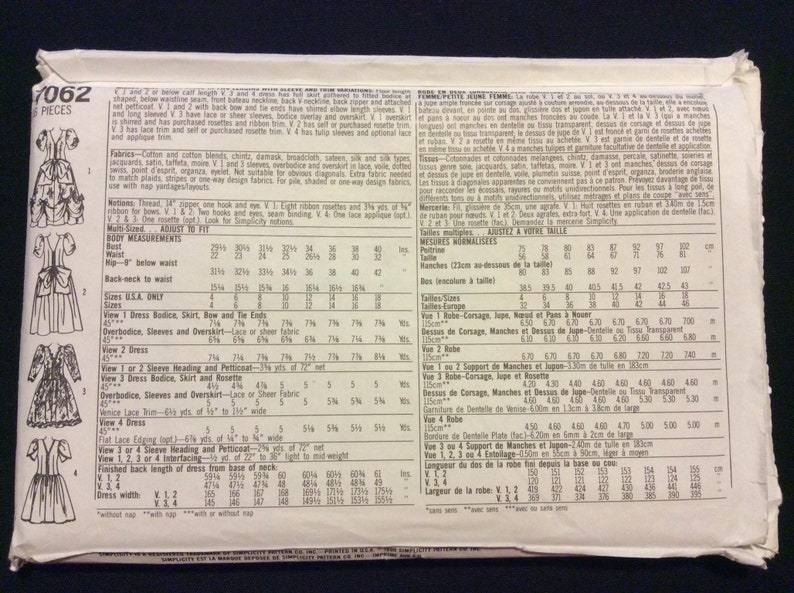 7062
PIECES
V. 1 and 2 or below calf length. V. 3 and 4 dress has full skirt gathered to fitted bodice at
shaped, below waistline seam, front bateau neckline, back V-neckline, back zipper and attached
net petticoat. V. 1 and 2 with back bow and tie ends have shirred elbow length sleeves. V. 1
and long sleeved V. 3 have lace or sheer sleeves, bodice overlay and overskirt. V. 1 overskirt
is shirred and has purchased rosettes and ribbon trim. V. 2 has self or purchased rosette trim.
V. 3 has lace trim and self or purchased rosette trim. V. 4 has tulip sleeves and optional lace
and applique trim.
Fabrics—Cotton and cotton blends, chintz, damask, broadcloth, sateen, silk and silk types,
jacquards, satin, taffeta, moire. V. 1 and 3 sleeves, overbodice and overskirt in lace, voile, dotted
swiss, point d'esprit, organza, eyelet. Not suitable for obvious diagonals. Extra fabric needed
to match plaids, stripes or one way design fabrics. For pile, shaded or one-way design fabrics,
use with nap yardages/layouts.
Notions: Thread, 14" zipper, one hook and eye. V. 1: Eight ribbon rosettes and 3⅝ yds. of ⅝"
ribbon for bows. V. 1 & 2: Two hooks and eyes, seam binding. V. 4: One lace applique (opt.).
V. 2 & 3: One rosette (opt.). Look for Simplicity notions.
Multi-Sized. . .ADJUST TO FIT
BODY MEASUREMENTS
Bust 29½ 30½ 31½ 32½ 34 36 38 40 Ins.
Waist 22 23 24 25 26½ 28 30 32 "
Hip—9" below waist
31½ 32½ 33½ 34½ 36 38 40 42 "
Back-neck to waist
15¼ 15½ 15¾ 16 16¼ 16½ 16¾ "
Sizes U.S.A. ONLY 4 6 8 10 12 14 16 18
Sizes 4 6 8 10 12 14 16 18
View 1 Dress Bodice, Skirt, Bow and Tie Ends
45"** 7⅛ 7⅜ 7⅜ 7⅜ 7⅜ 7⅜ 7⅝ 7⅝ Yds.
Overbodice, Sleeves and Overskirt—Lace or sheer fabric
45"** Yds.
View 2 Dress
45"** 7¼ 7¼ 7⅜ 7⅜ 7½ 7⅞ 7⅞ 8⅛ Yds.
View 1 or 2 Sleeve Heading and Petticoat—3⅝ yds. of 72" net
View 3 Dress Bodice, Skirt and Rosette
45"** 4½ 4¾ 4⅞ 5 5 5 5 5 Yds.
Overbodice, Sleeves and Overskirt—Lace or Sheer Fabric
45"** 5 5 5 5 5 5¾ 5¾ 5¾ Yds.
Venice Lace Trim—6½ yds. of ½" to 1½" wide
View 4 Dress
45"** 5 5 5 5 5⅛ 5⅜ 5½ 5½ Yds.
Flat Lace Edging (opt.)—6⅞ yds. of ¼" to ¾" wide
View 3 or 4 Sleeve Heading and Petticoat—2⅝ yds. of 72" net
View 1, 2, 3 or 4 Interfacing—½ yd. of 22" to 36" light to mid-weight
Finished back length of dress from base of neck:
V. 1, 2 59¼ 59½ 59¾ 60 60¼ 60½ 60¾ 61 Ins.
V. 3, 4 47¼ 47½ 47¾ 48 48¼ 48½ 48¾ 49 "
Dress width: V. 1, 2 165 165 167 168 169½ 171½ 173½ 175½ "
V. 3, 4 145 146 147 148 149½ 151½ 153½ 155½ "
*without nap **with nap ***with or without nap
1
2
3
4
ROBE EN DEUX LONGUEURS
FEMME/PETITE JEUNE FEMME: La robe V. 1 et 2 au sol, ou V. 3 et 4 au dessous du mollet,
a jupe ample froncée sur corsage ajusté à couture arrondie, au-dessous de la taille, elle a encolure
bateau devant, en pointe au dos, glissière dos et jupon en tulle attaché. V. 1 et 2, avec nœud
et pans à nouer au dos ont manches froncées au coude. La V. 1 et la V. 3 (qui a manches
longues) ont manches en dentelle ou tissu transparent, dessus de corsage et dessus de jupe
en dentelle ou tissu transparent; le dessus de jupe de V. 1 est froncé et garni de rosettes achetées
et ruban. V. 2 a rosette en même tissu ou achetée. V. 3 est garnie de dentelle et rosette
en même tissu ou achetée. V. 4 a manches tulipes et garniture facultative de dentelle et application.
Tissus—Cotonnades et cotonnades mélangées, chintz, damassé, percale, satinette, soieries et
tissus genre soie, jacquards, satin, taffetas, moire. V. 1 et 3 manches, dessus de corsage et dessus
de jupe en dentelle, voile, plumetis suisse, point d'esprit, organza, broderie anglaise.
Les tissus à diagonales apparentes ne conviennent pas à ce patron. Prévoyez davantage de tissu
pour raccorder les écossais, rayures ou motifs unidirectionnels. Pour les tissus à long poil, de
différents tons ou à motifs unidirectionnels, utilisez métrages et plans de coupe "avec sens".
Mercerie: Fil, glissière de 35cm, une agrafe. V. 1: Huit rosettes en ruban et 3.40m de 1.5cm
de ruban pour nœuds. V. 1 et 2: Deux agrafes, extra-fort. V. 4: Une application de dentelle (fac.).
V. 2 et 3: Une rosette (fac.). Demandez la mercerie Simplicity.
Tailles multiples. . .AJUSTEZ A VOTRE TAILLE
MESURES NORMALISEES
Poitrine 75 78 80 83 87 92 97 102 cm
Taille 56 58 61 64 67 71 76 81 "
Hanches (23cm au-dessous de la taille)
80 83 85 88 92 97 102 107 "
Dos (encolure à taille)
38.5 39.5 40 40.5 41.5 42 42.5 43 "
Tailles/Sizes 4 6 8 10 12 14 16 18
Tailles-Europe 32 34 36 38 40 42 44 46
Vue 1 Robe-Corsage, Jupe, Nœud et Pans à Nouer
115cm** 6.50 6.70 6.70 6.70 6.70 6.70 7.00 7.00 m
Dessus de Corsage, Manches et Dessus de Jupe—Dentelle ou Tissu Transparent
115cm** 6.10 6.10 6.10 6.10 6.20 6.60 6.60 6.80 m
Vue 2 Robe
115cm** 6.70 6.70 6.70 6.70 6.80 7.20 7.20 7.40 m
Vue 1 ou 2 Support de Manches et Jupon—3.30m de tulle en 183cm
Vue 3 Robe-Corsage, Jupe et Rosette
115cm** 4.20 4.30 4.40 4.60 4.60 4.60 4.60 4.60 m
Dessus de Corsage, Manches et Dessus de Jupe—Dentelle ou Tissu Transparent
115cm** 4.60 4.60 4.60 4.60 4.60 5.30 5.30 5.30 m
Garniture de Dentelle de Venise—6.00m en 1.3cm à 3.8cm de large
Vue 4 Robe
115cm** 4.50 4.60 4.60 4.60 4.70 5.00 5.00 5.00 m
Bordure de Dentelle Plate (fac.)—6.20m en 6mm à 2cm de large
Vue 3 ou 4 Support de Manches et Jupon—2.40m de tulle en 183cm
Vue 1, 2, 3 ou 4 Entoilage—0.50m en 55cm à 90cm, léger à moyen
Longueur du dos de la robe fini depuis la base du cou:
V. 1, 2 150 151 152 153 153 154 154 155 cm
V. 3, 4 120 121 121 122 122 123 124 125 "
Largeur de la robe: V. 1, 2 419 422 424 427 431 436 441 446 "
V. 3, 4 369 371 374 376 380 385 390 395 "
*sans sens **avec sens ***avec ou sans sens
SIMPLICITY IS A REGISTERED TRADEMARK OF SIMPLICITY PATTERN CO. INC. PRINTED IN U.S.A. 1990 SIMPLICITY PATTERN CO. INC.
SIMPLICITY EST LA MARQUE DEPOSEE DE SIMPLICITY PATTERN CO. INC. IMPRIME AUX E.U.